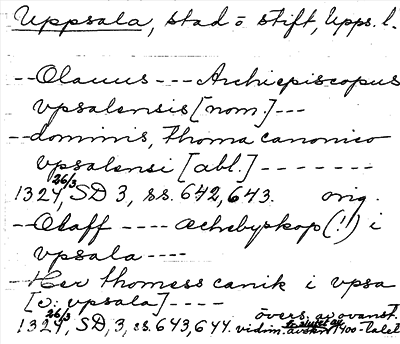 Uppsala, stad o stift, Upps. l.
-- Olauus --- Archiepiscopus
vpsalensis [nom.] ---
-- dominis, Thoma canonico
vpsalensi [abl.] -------
1324 26/3, SD 3, ss. 642, 643. orig.
-- Olaff ---- ærchebyskop (!!) i
vpsala ----
- Her thomess canik i vpsa
[o: vpsala] ----
övers. av ovanst.
1324 26/3, SD, 3, ss. 643, 644. vidim. avskr. 1400-talet